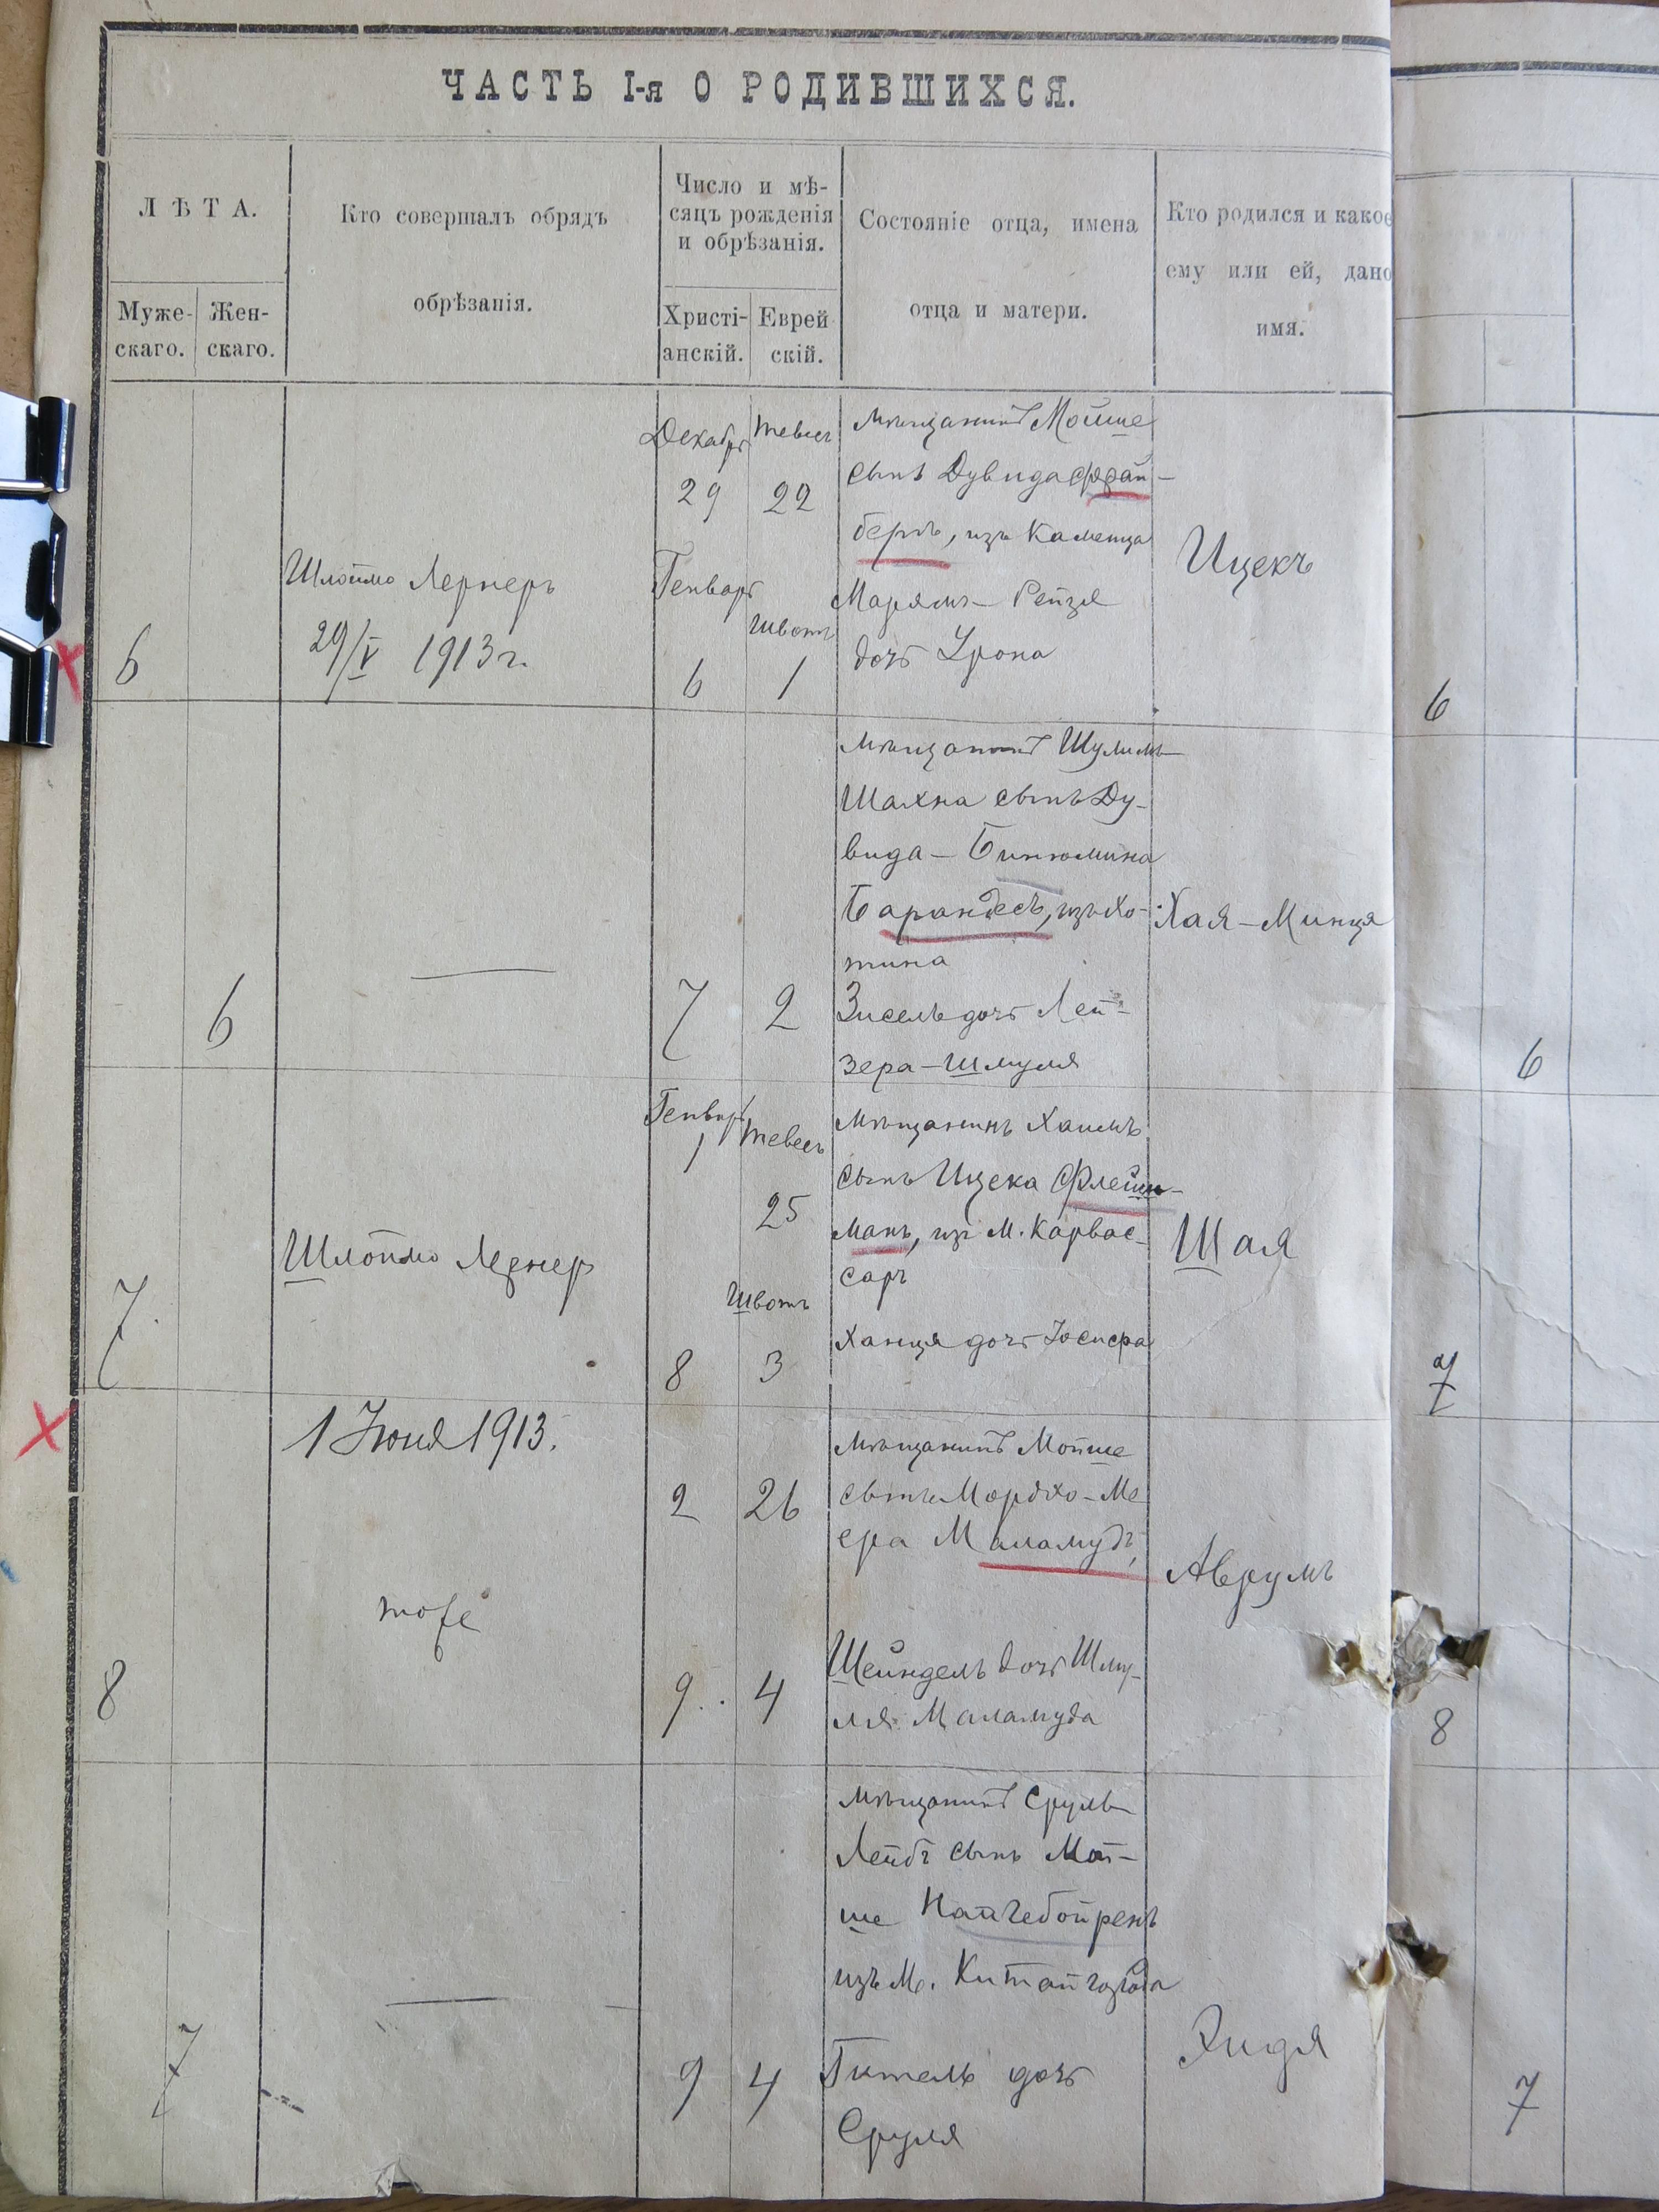 ЧАСТЬ I-я О РОДИВШИХСЯ.
ЛѢТА.
Муже-
скаго.
Жен-
скаго.
Кто совершалъ обрядъ
обрѣзанія.
Число и мѣ-
сяцъ рожденія
и обрѣзанія.
Христі-
анскій.
Еврей
скій.
Состояніе отца, имена
отца и матери.
Кто родился и какое
ему или ей, дано
имя.
6
Шлоймо Лернеръ
29/V 1913 г.
Декабрь
29
Генварь
6
тевесъ
22
Швотъ
1
мѣщанинъ Мойше
сынъ Дувида
бергъ, изъ Каменца
Марямъ-Рейзя
дочь Урона
Ицекъ
6
6
—
7
2
мѣщанинъ Шулимъ-
Шахна сынъ Ду-
вида-Бинюмина
Барандесъ, изъ Хо-
тина
Зисель дочь Лей-
зера-Шмуля
Хая-Минця
6
7.
Шлоймо Лернеръ
Генварь
1
8
тевесъ
25
Швотъ
3
мѣщанинъ Хаимъ
сынъ Ицека Флейш-
манъ, изъ м. Карвас-
саръ
Ханця дочь Іосифа
Шая
7
8
1 Іюня 1913.
тоже
2
9
26
4
мѣщанинъ Мойше
сынъ Мордхо-Ме
ера Маламудъ,
Шейндель дочь Шму-
ля Маламуда
Аврумъ
8
7
—
9
4
мѣщанинъ Сруль-
Лейбъ сынъ Мой-
ше
изъ м. Китайгорода
Гитель дочь
Сруля
7